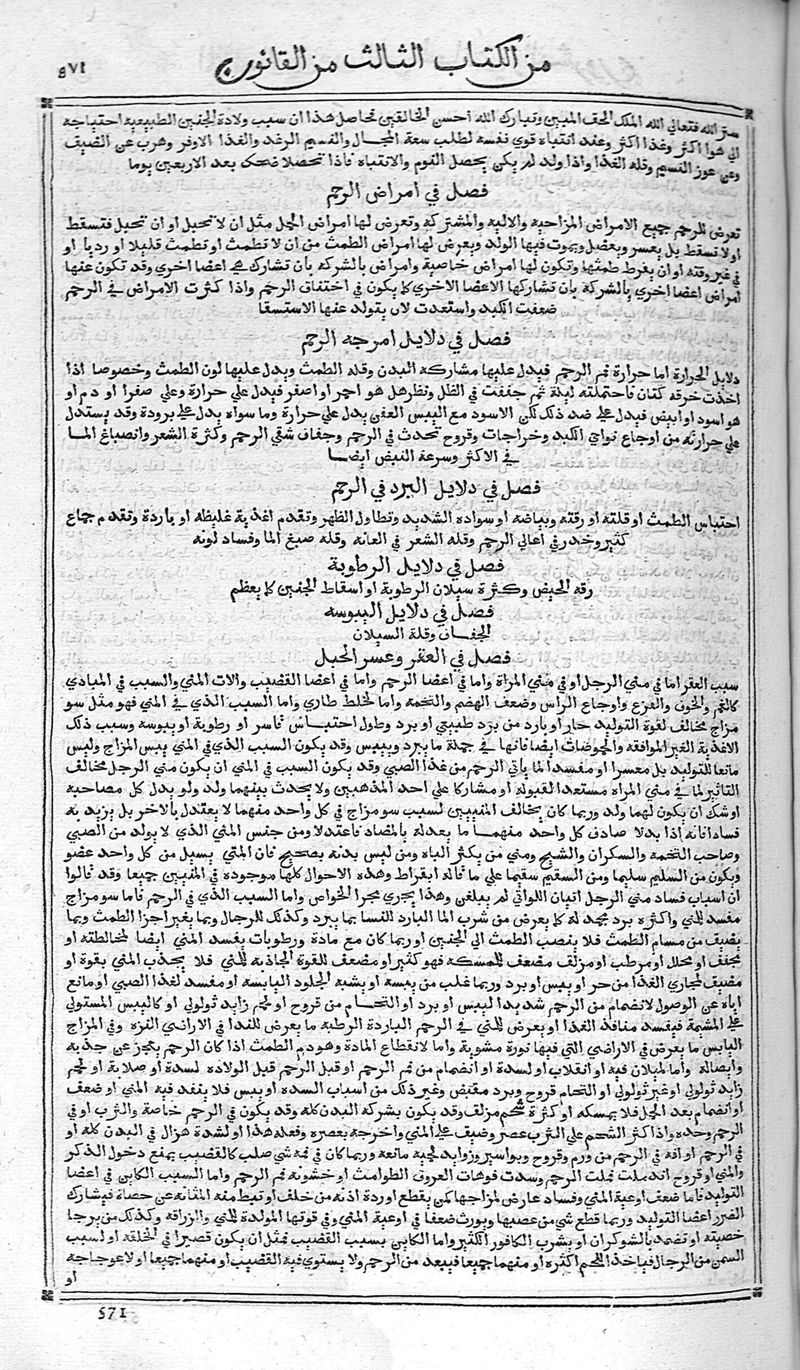 من الكتاب الثالث من القانون
٥٧١
سر الله فتعالي الله الملك الحق المبين وتبارك الله احسن الخالقين فحاصل هذا ان سبب ولادة الجنين الطبيعية احتياجه
الي هوا اكثر وغذا اكثر وعند انتباه قوي نفسه لطلب سعة المجال والنسيم الرغد والغذا الاوفر وهرب عن الضيق
وعن عوز النسيم وقله الغذا واذا ولد لم يكن يحصل النوم والانتباه فاذا تحصلا ضحك بعد الاربعين يوما
فصل في امراض الرحم
تعرض للرحم جميع الامراض المزاجية والالية والمشتركة وتعرض لها امراض الحمل مثل ان لا تحبل او ان تحبل فتسقط
او لا تسقط بل يعسر ويعضل ويموت فيها الولد ويعرض لها امراض الطمث من ان لا تطمث او تطمث قليلا او رديا او
في غير وقته او ان يفرط طمثها وتكون لها امراض خاصية وامراض بالشركة بان تشارك هي اعضا اخري وقد تكون عنها
امراض اعضا اخري بالشركة بان تشاركها الاعضا الاخري كما يكون في اختناق الرحم واذا كثرت الامراض في الرحم
ضعفت الكبد واستعدت لان يتولد عنها الاستسقا
فصل في دلايل امزجه الرحم
دلايل الحرارة اما حرارة فم الرحم فيدل عليها مشاركه البدن وقلة الطمث ويدل عليها لون الطمث وخصوصا اذا
اخذت خرقه كتان فاحتملته ليلة ثم جففت في الظل ونظر هل هو احمر او اصفر فيدل علي حرارة وعلي صفرا او دم او
هو اسود او ابيض فيدل علي ضد ذلك لكن الاسود مع اليبس العفن يدل علي حرارة وما سواه يدل علي برودة وقد يستدل
علي حرارته من اوجاع نواحي الكبد وخراجات وقروح تحدث في الرحم وجفاف شفتي الرحم وكثرة الشعر وانصباغ الما
في الاكثر وسرعة النبض ايضا
فصل في دلايل البرد في الرحم
احتباس الطمث او قلته او رقته وبياضه او سواده الشديد وتطاول الظهر وتقدم اغذية غليظه او باردة وتقدم جماع
كثير وخدر في اعالي الرحم وقله الشعر في العانه وقله صبغ الما وفساد لونه
فصل في دلايل الرطوبة
رقه الحيض وكثرة سيلان الرطوبة او اسقاط الجنين كما يعظم
فصل في دلايل اليبوسه
الجفاف وقلة السيلان
فصل في العقر وعسر الحبل
سبب العقر اما في مني الرجل او في مني المراة واما في اعضا الرحم واما في اعضا القضيب والات المني والسبب في المبادي
كالغم والخوف والفزع واوجاع الراس وضعف الهضم والتخمة واما لخلط طاري واما السبب الذي في المني فهو مثل سو
مزاج مخالف لقوة التوليد حار او بارد من برد طبيعي او برد وطول احتباس واسر او رطوبة او يبوسه وسبب ذلك
الاغذية الغير الموافقه والحموضات ايضا فانها في جملة ما يبرد وييبس وقد يكون السبب الذي في المني يبس المزاج وليس
مانعا للتوليد بل معسرا او مفسدا لما ياتي الرحم من غذا الصبي وقد يكون السبب في المني ان يكون مني الرجل مخالف
التاثير لما في مني المراه مستعدا لقبوله او مشاركا علي احد المذهبين ولا يحدث بينهما ولد ولو بدل كل مصاحبه
اوشك ان يكون لهما ولد وربما كان يخالف المنيين لسبب سو مزاج في كل واحد منهما لا يعتدل بالاخر بل يزيد به
فسادا فانه اذا بدلا صادف كل واحد منهما ما يعدله بالمضاد فاعتدلا ومن جنس المني الذي لا يولد مني الصبي
وصاحب التخمة والسكران والشيخ ومني من يكثر الباه ومن ليس بدنه بصحيح فان المني يسيل من كل واحد عضو
ويكون من السليم سليما ومن السقيم سقيما علي ما قاله ابقراط وهذه الاحوال كلها موجودة في المنيين جميعا وقد قالوا
ان اسباب فساد مني الرجل اتيان اللواتي لم يبلغن وهذا يجري مجرا الخواص واما السبب الذي في الرحم فاما سو مزاج
مفسد للمني واكثره برد مجمد له كما يعرض من شرب الما البارد للنسا بما يبرد وكذلك للرجال وبما يغير اجزا الطمث وبما
يضيف من مسام الطمث فلا ينصب الطمث الي الجنين او ربما كان مع مادة ورطوبات يفسد المني ايضا لمخالطته او
مجفف او محلل او مرطب او مزلق مضعف للمسكه فهو كثير او مضعف للقوة الجاذبه للمني فلا يجذب المني بقوة او
مضيق لمجاري الغذا من حر او يبس او برد وربما غلب من يبسه او يشبه الجلود اليابسه او مفسد لغذا الصبي او مانع
اياه عن الوصول لانضمام من الرحم شديد ليبس او برد او التحام من قروح او لحم زايد ثولولي او كاليبس المستولي
علي المشيمة فيفسد منافذ الغذا او يعرض للمني في الرحم الباردة الرطبه ما يعرض للبذر في الاراضي النزه وفي المزاج
اليابس ما يعرض في الاراضي التي فيها نورة مشوية واما لانقطاع المادة وهو دم الطمث اذا كان الرحم يعجز عن جذبه
وايصاله واما لميلان فيه او انقلاب او لسدة او انضمام من فم الرحم او قبل الرحم قبل الولاده لسدة او صلابة او لحم
زايد ثولولي او غير ثولولي او التحام قروح وبرد مقبض وغير ذلك من اسباب السده او يبس فلا ينفذ فيه المني او ضعف
او انضمام بعد الحمل فلا يمسكه او كثرة شحم مزلق وقد يكون بشركة البدن كله وقد يكون في الرحم خاصة والثرب او في
الرحم وحده واذا كثر الشحم علي الثرب عصر وضيق علي المني واخرجه بعصره وفعله هذا او لشدة هزال في البدن كله او
في الرحم او افة في الرحم من ورم وقروح وبواسير وزوايد لحمية مانعه وربما كان في فمه شي صلب كالقضيب يمنع دخول الذكر
والمني او قروح اندملت فملت الرحم وسدت فوهات العروق الطوامث او خشونة فم الرحم واما السبب الكاين في اعضا
التوليد فاما ضعف اوعية المني وفساد عارض لمزاجها كمن يقطع اوردة اذنه من خلف او تبط منه المثانه عن حصاة فيشارك
الضرر اعضا التوليد وربما قطع شي من عصبها ويورث ضعفا في اوعية المني وفي قوتها المولدة للمني والزراقه وكذلك من يرض
خصيته او تضمد بالشوكران او يشرب الكافور الكثير واما الكاين بسبب القضيب فمثل ان يكون قصيرا في الخلقه او لسبب
السمن من الرجال فياخذ اللحم اكثره او منهما جميعا فيبعد من الرحم ولا يستوي فيه القضيب او منهما جميعا او لاعوجاجه
او
571